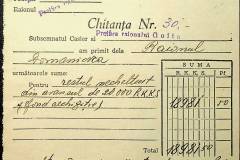 Raionul
Chitanța Nr. 30.-
Subsemnatul Casier al Pretura raionului Golta
am primit dela Raionul
Domanievca
următoarele sume:
Pentru restul necheltuit
din avansul de 28.000 R.K.K.S
SUMA
R. K. K. S.
18981 50
Total 18981 50